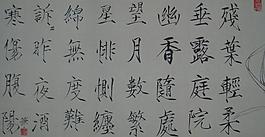 殘葉輕柔
垂露庭院
幽香隨處
望月數繁
星悱惻纏
綿無度難
訴昨夜酒
寒傷腹